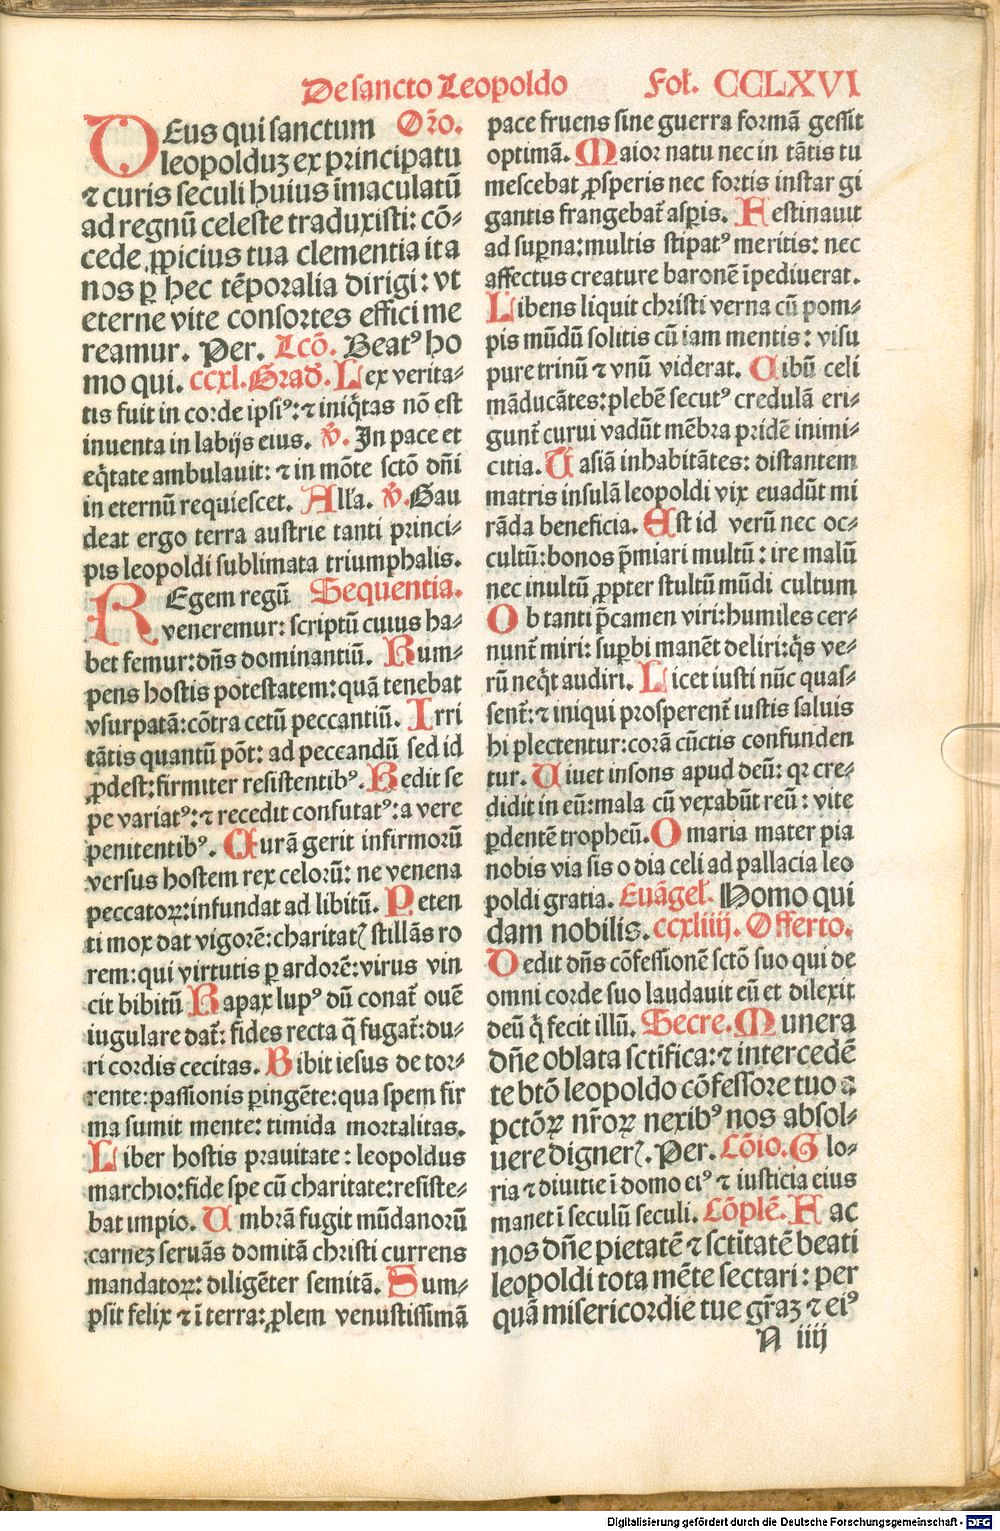 De sancto Leopoldo Fol. CCLXVI
DEus qui sanctum Oro.
leopolduȝ ex principatu
⁊ curis seculi huius īmaculatū
ad regnū celeste traduxisti: cō-
cede ꝓpicius tua clementia ita
nos ꝑ hec tēporalia dirigi: vt
eterne vite consortes effici me
reamur. Per. Lcō. Beatꝰ ho
mo qui. ccxl. Grad. Lex verita-
tis fuit in corde ipsiꝰ: ⁊ iniq̄tas nō est
inuenta in labijs eius. ℣. In pace et
eq̄tate ambulauit: ⁊ in mōte sctō dn̄i
in eternū requiescet. Alla. ℣. Gau
deat ergo terra austrie tanti princi-
pis leopoldi sublimata triumphalis.
REgem regū Sequentia.
veneremur: scriptū cuius ha-
bet femur: dn̄s dominantiū. Rum-
pens hostis potestatem: quā tenebat
vsurpatā: cōtra cetū peccantiū. Irri
tātis quantū pōt: ad peccandū sed id
ꝓdest: firmiter resistentibꝰ. Redit se
pe variatꝰ: ⁊ recedit confutatꝰ: a vere
penitentibꝰ. Curā gerit infirmorū
versus hostem rex celorū: ne venena
peccatoꝝ: infundat ad libitū. Peten
ti mox dat vigorē: charitatꝭ stillās ro
rem: qui virtutis ꝑ ardorē: virus vin
cit bibitū Rapax lupꝰ dū conat̄ ouē
iugulare dat̄: fides recta q̄ fugat̄: du-
ri cordis cecitas. Bibit iesus de tor-
rente: passionis ꝑ ingēte: qua spem fir
ma sumit mente: timida mortalitas.
Liber hostis prauitate: leopoldus
marchio: fide spe cū charitate: resiste-
bat impio. Vmbrā fugit mūdanorū
carneȝ seruās domitā christi currens
mandatoꝝ: diligēter semitā. Sum-
psit felix ⁊ ī terra: ꝓlem venustissimā
pace fruens sine guerra formā gessit
optimā. Maior natu nec in tātis tu
mescebat ꝓsperis nec fortis instar gi
gantis frangebat̄ asꝑis. Festinauit
ad suꝑna: multis stipatꝰ meritis: nec
affectus creature baronē īpediuerat.
Libens liquit christi verna cū pom-
pis mūdū solitis cū iam mentis: visu
pure trinū ⁊ vnū viderat. Cibū celi
māducātes: plebē secutꝰ credulā eri-
gunt̄ curui vadūt mēbra pridē inimi-
citia. Vasiā inhabitātes: distantem
matris insulā leopoldi vix euadūt mi
rāda beneficia. Est id verū nec oc-
cultū: bonos p̄miari multū: ire malū
nec inultū ꝓpter stultū mūdi cultum
Ob tanti p̄camen viri: humiles cer-
nunt̄ miri: suꝑbi manēt deliri: q̄s ve-
rū neq̄t audiri. Licet iusti nūc quas-
sent̄: ⁊ iniqui prosperent̄ iustis saluis
hi plectentur: corā cūctis confunden
tur. Viuet insons apud deū: qꝛ cre-
didit in eū: mala cū vexabūt reū: vite
ꝑdentē tropheū. O maria mater pia
nobis via sis o dia celi ad pallacia leo
poldi gratia. Euāgel. Homo qui
dam nobilis. ccxliiij. Offerto.
Dedit dn̄s cōfessionē sctō suo qui de
omni corde suo laudauit eū et dilexit
deū q̄ fecit illū. Secre. Munera
dn̄e oblata sctifica: ⁊ intercedē
te btō leopoldo cōfessore tuo a
pctōꝝ nr̄oꝝ nexibꝰ nos absol-
uere dignerꝭ. Per. Cōio. Glo-
ria ⁊ diuitie ī domo eiꝰ ⁊ iusticia eius
manet ī seculū seculi. Cōplē. Fac
nos dn̄e pietatē ⁊ sctitatē beati
leopoldi tota mēte sectari: per
quā misericordie tue gr̄aȝ ⁊ eiꝰ
A iiij
Digitalisierung gefördert durch die Deutsche Forschungsgemeinschaft - DFG